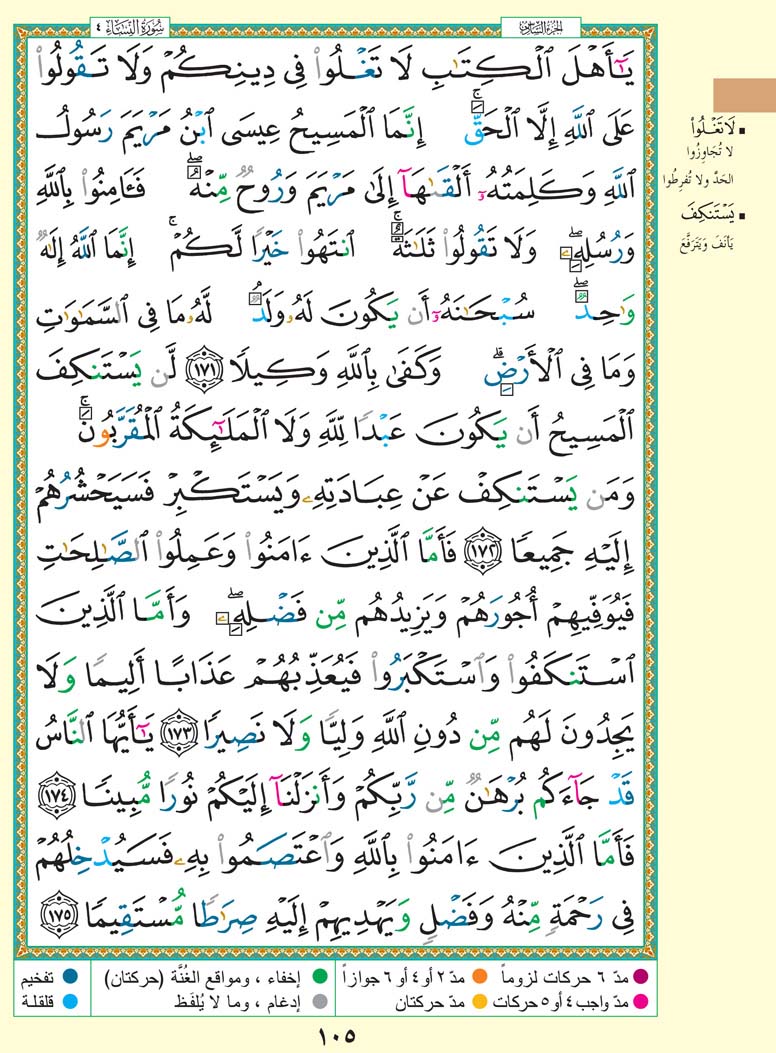 سُورَةُ النِّسَاءِ ٤
الجزء السادس
يَـٰٓأَهْلَ ٱلْكِتَـٰبِ لَا تَغْلُوا۟ فِى دِينِكُمْ وَلَا تَقُولُوا۟
عَلَى ٱللَّهِ إِلَّا ٱلْحَقَّ ۚ إِنَّمَا ٱلْمَسِيحُ عِيسَى ٱبْنُ مَرْيَمَ رَسُولُ
ٱللَّهِ وَكَلِمَتُهُۥٓ أَلْقَىٰهَآ إِلَىٰ مَرْيَمَ وَرُوحٌ مِّنْهُ ۖ فَـَٔامِنُوا۟ بِٱللَّهِ
وَرُسُلِهِۦ ۖ وَلَا تَقُولُوا۟ ثَلَـٰثَةٌ ۚ ٱنتَهُوا۟ خَيْرًا لَّكُمْ ۚ إِنَّمَا ٱللَّهُ إِلَـٰهٌ
وَٰحِدٌ ۖ سُبْحَـٰنَهُۥٓ أَن يَكُونَ لَهُۥ وَلَدٌ ۘ لَّهُۥ مَا فِى ٱلسَّمَـٰوَٰتِ
وَمَا فِى ٱلْأَرْضِ ۗ وَكَفَىٰ بِٱللَّهِ وَكِيلًا ١٧١ لَّن يَسْتَنكِفَ
ٱلْمَسِيحُ أَن يَكُونَ عَبْدًا لِّلَّهِ وَلَا ٱلْمَلَـٰٓئِكَةُ ٱلْمُقَرَّبُونَ ۚ
وَمَن يَسْتَنكِفْ عَنْ عِبَادَتِهِۦ وَيَسْتَكْبِرْ فَسَيَحْشُرُهُمْ
إِلَيْهِ جَمِيعًا ١٧٢ فَأَمَّا ٱلَّذِينَ ءَامَنُوا۟ وَعَمِلُوا۟ ٱلصَّـٰلِحَـٰتِ
فَيُوَفِّيهِمْ أُجُورَهُمْ وَيَزِيدُهُم مِّن فَضْلِهِۦ ۖ وَأَمَّا ٱلَّذِينَ
ٱسْتَنكَفُوا۟ وَٱسْتَكْبَرُوا۟ فَيُعَذِّبُهُمْ عَذَابًا أَلِيمًا وَلَا
يَجِدُونَ لَهُم مِّن دُونِ ٱللَّهِ وَلِيًّا وَلَا نَصِيرًا ١٧٣ يَـٰٓأَيُّهَا ٱلنَّاسُ
قَدْ جَآءَكُم بُرْهَـٰنٌ مِّن رَّبِّكُمْ وَأَنزَلْنَآ إِلَيْكُمْ نُورًا مُّبِينًا ١٧٤
فَأَمَّا ٱلَّذِينَ ءَامَنُوا۟ بِٱللَّهِ وَٱعْتَصَمُوا۟ بِهِۦ فَسَيُدْخِلُهُمْ
فِى رَحْمَةٍ مِّنْهُ وَفَضْلٍ وَيَهْدِيهِمْ إِلَيْهِ صِرَٰطًا مُّسْتَقِيمًا ١٧٥
▪ لَا تَغْلُوا۟
لا تُجَاوِزُوا
الحَدَّ ولا تُفرِطُوا
▪ يَسْتَنكِفَ
يَأنَفَ وَيَتَرَفَّعَ
● مدّ ٦ حركات لزوماً ● مدّ ٢ أو ٤ أو ٦ جوازاً ● إخفاء ، ومواقع الغُنَّة (حركتان) ● تفخيم
● مدّ واجب ٤ أو ٥ حركات ● مدّ حركتان ● إدغام ، وما لا يُلفَظ ● قلقلـة
١٠٥